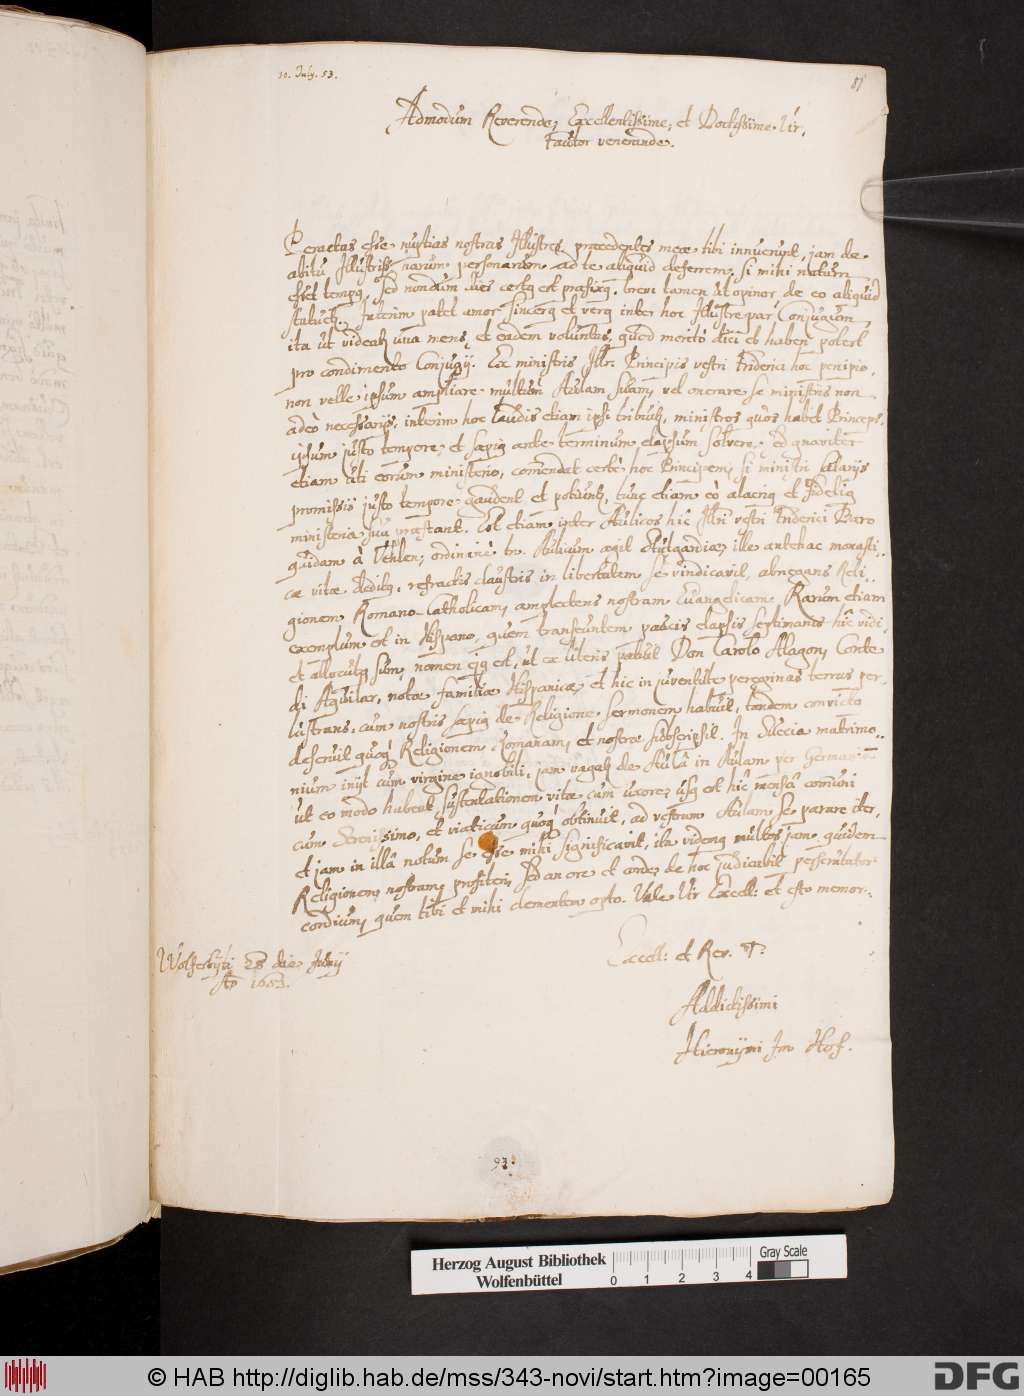 10. July. 53.
81
Admodum Reverende, Excellentissime, et Doctissime Vir,
Fautor venerande.
Peractas esse nuptias nostras Illustres, praecedentes meae tibi innuerunt, jam de
abitu Illustriss. narum personarum ad te aliquid deferrem, si mihi notum
esset tempq, sed nondum dies certq est praefixq, brevi tamen ut opinor de eo aliquid
statuet. Interim patet amor sincerq et verq inter hoc Illustre par Conjugum,
ita ut videatur una mens, et eadem voluntas, quod merito dici et haberi potest
pro condimento Conjugij. Ex ministris Illmi Principis vestri Friderici hoc percipio,
non velle ipsum ampliare multum Aulam suam, vel onerare se ministris non
adeo necessarijs, interim hoc laudis etiam ipsi tribuunt, ministros quos habet Princeps,
ipsum justo tempore, et saepiq ante terminum elapsum solvere, sed gnaviter
etiam uti eorum ministerio, comendat certe hoc Principem, si ministri salarijs
promissis justo tempore gaudent et potiuntur, tunc etiam eo alacriq et fideliq
ministeria sua praestant. Est etiam inter Aulicos hic Illmi vestri Friderici Baro
quidam à Vehlen, ille antehac monasti-
cae vitae deditq, refractis claustris in libertatem se vindicavit, abnegans Reli-
gionem Romano-Catholicam, amplectens nostram Euangelicam. Rarum etiam
exemplum est in Hispano, quem transeuntem paucis elapsis septimanis hîc vidi,
et allocutq sum, nomen ejq est, ut ex literis patuit Don Carolo Alagon, Conte
di Aguilar, notae familiae Hispanicae, et hic in juventute peregrinas terras per-
lustrans, cum nostris saepiq de Religione sermonem habuit, tandem convicto
deseruit quoq Religionem Romanam, et nostrae subscripsit. In Suecia matrimo-
nium inijt cum virgine ignobili, jam vagatur de Aulâ in Aulam per Germaniā
ut eo modo habeat sustentationem vitae cum uxore, usq est hîc mensâ comuni
cum Serenissimo, et viaticum quoq obtinuit, ad vestram Aulam se parare iter,
et jam in illâ notum se esse mihi significavit, ita videmq multos jam quidem
Religionem nostram profiteri, sed an ore et corde, de hoc judicabit perscrutator
cordium, quem tibi et mihi clementem opto. Vale Vir Excell: et esto memor
Excell: et Rev. T.
Wolferbyti 28 die Junij
Ao 1653.
Addictissimi
Hieronymi Im Hof.
93.
Herzog August Bibliothek
Wolfenbüttel
0 1 2 3 4
Gray Scale
© HAB http://diglib.hab.de/mss/343-novi/start.htm?image=00165
DFG